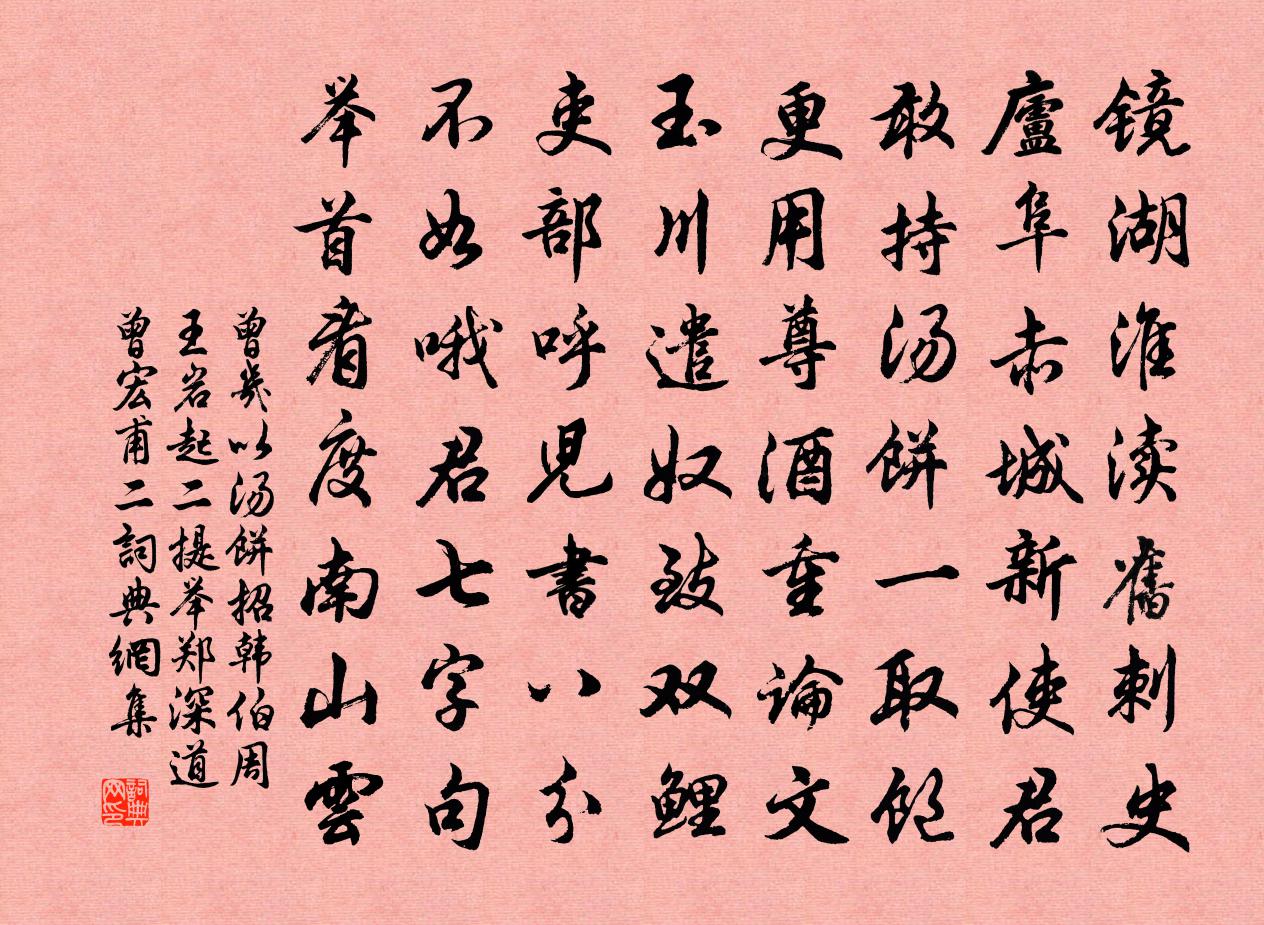 镜湖淮渎旧刺史
廬阜赤城新使君
敢持汤餅一取饱
更用尊酒重論文
玉川遣奴致双鲤
吏部呼児書八分
不如哦君七字句
举首看度南山雲
曾幾以汤餅招韩伯周
王岩起二提举郑深道
曾宏甫二詞典網集
詞典网印